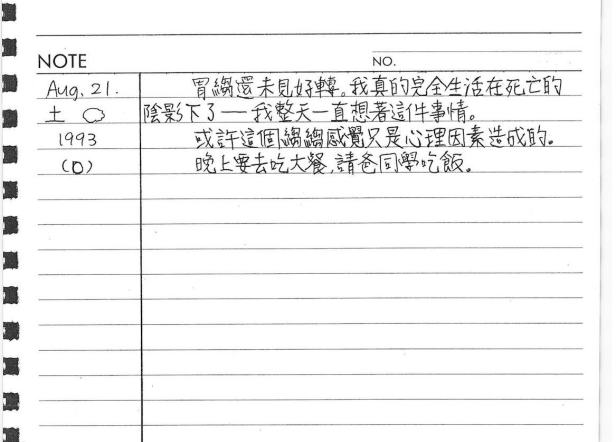 NOTE NO.
Aug. 21. 胃縐還未見好轉。我真的完全生活在死亡的
土 陰影下了——我整天一直想著這件事情。
1993 或許這個縐縐感覺只是心理因素造成的。
(0) 晚上要去吃大餐,請爸同學吃飯。